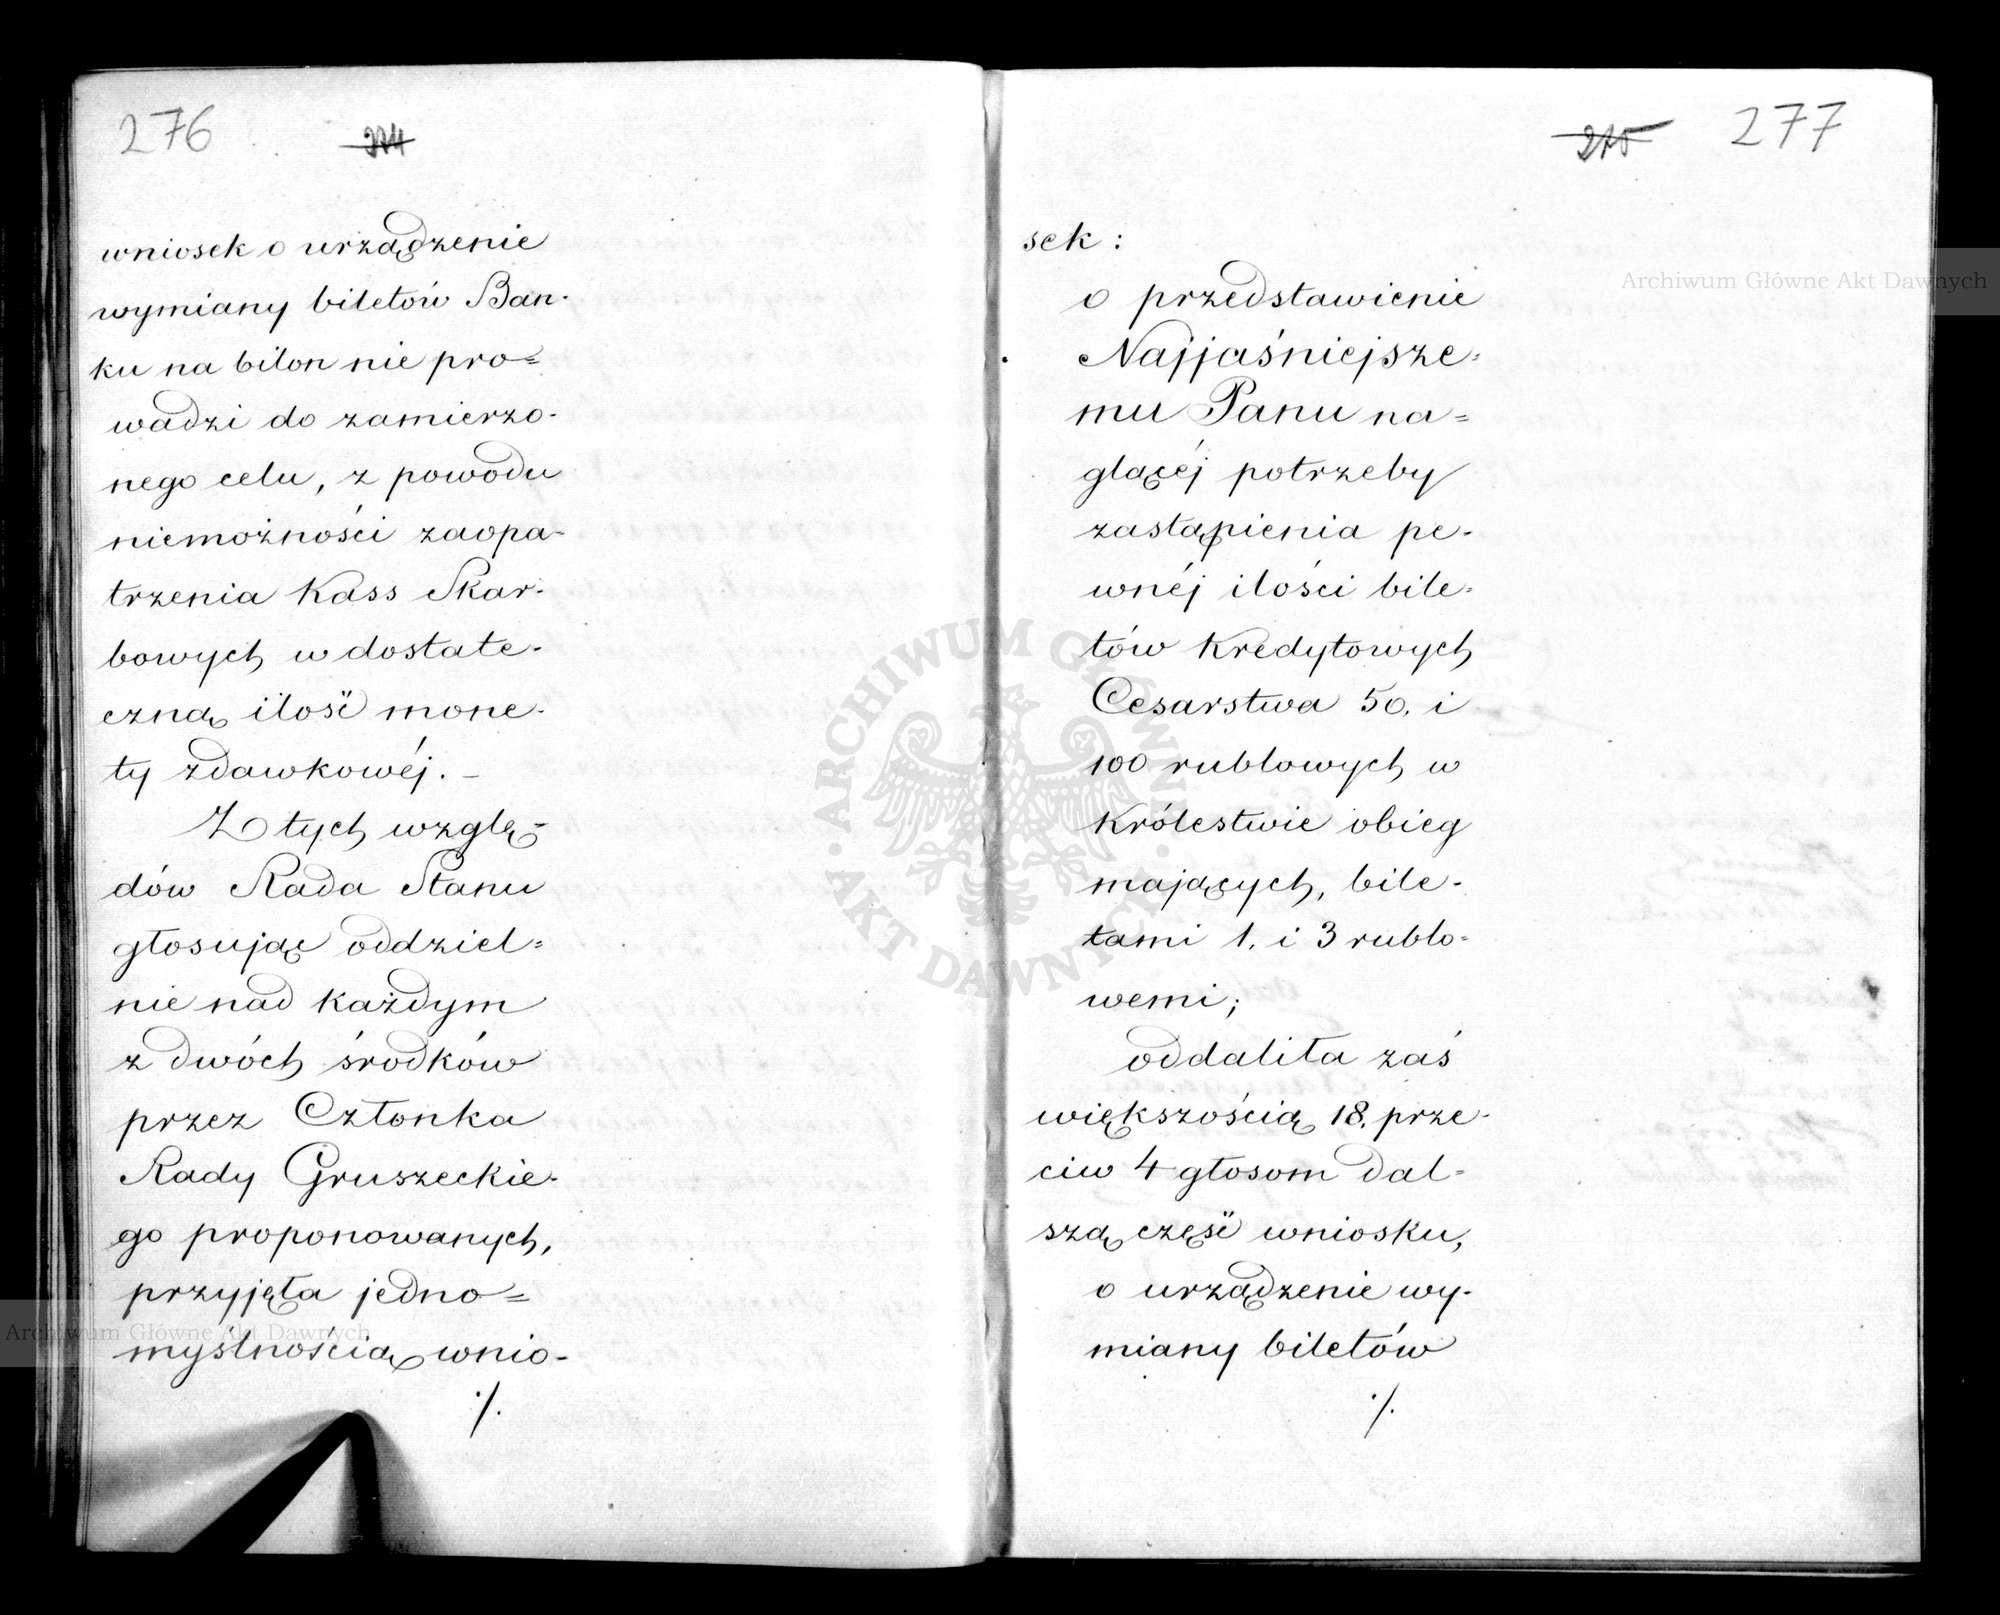 276
274
wniosek o urządzenie
wymiany biletów Ban-
ku na bilon nie pro=
wadzi do zamierzo-
nego celu, z powodu
niemożności zaopa-
trzenia Kass Skar-
bowych w dostate-
czną ilość mone-
ty zdawkowéj. –
Z tych wzglę-
dów Rada Stanu
głosując oddziel=
nie nad każdym
z dwóch środków
przez Członka
Rady Gruszeckie-
go proponowanych,
przyjęła jedno=
myślnością wnio-
./.
277
275
sek :
o przedstawienie
Najjaśniejsze-
mu Panu na=
glącéj potrzeby
zastąpienia pe-
wnéj ilości bile-
tów Kredytowych
Cesarstwa 50. i
100 rublowych w
Królestwie obieg
mających, bile-
tami 1. i 3 rublo=
wemi;
oddaliła zaś
większością 18. prze-
ciw 4 głosom dal=
szą część wniosku,
o urządzenie wy-
miany biletów
./.
Archiwum Główne Akt Dawnych
Archiwum Główne Akt Dawnych
ARCHIWUM GŁÓWNE AKT DAWNYCH